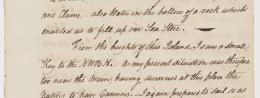 and Clams. also Water in the hollow of a rock which
enabled us to fill up our Sea Store.
From the heights of this Island I saw a small
Key to the NWbN. As my present situation was therefore
too near the Main having discovered at this place the
natives to have Cannoes. I again prepared to sail as